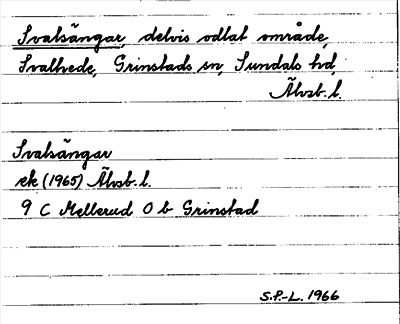 Svalsängar, delvis odlat område,
Svaltvede, Grinstads sn, Sundals hd,
Älvsb. l.
Svalsängar
ek (1965) Älvsb. l.
9 C Mellerud O b Grinstad
S.P.-L. 1966